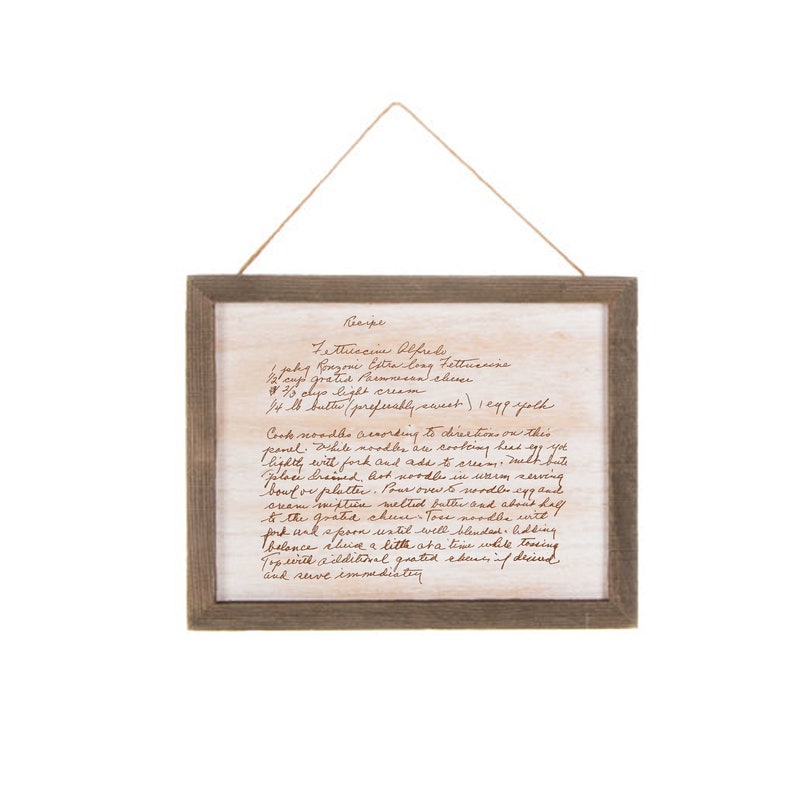 Recipe
Fettuccine Alfredo
1 pkg Ronzoni Extra Long Fettuccine
1/2 cup grated Parmnesan cheese
2/3 cups light cream
1/4 lb butter (preferably sweet) 1 egg yolk
Cook noodles according to directions on this
panel. While noodles are cooking beat egg yol
lightly with fork and add to cream. Melt butte
Place drained, hot noodles in warm serving
bowl or platter. Pour over to noodles egg and
cream mixture melted butter and about half
to the grated cheese. Toss noodles with
fork and spoon until well blended. Adding
balance cheese a little at a time while tossing
Top with additional grated cheese if desired
and serve immediately